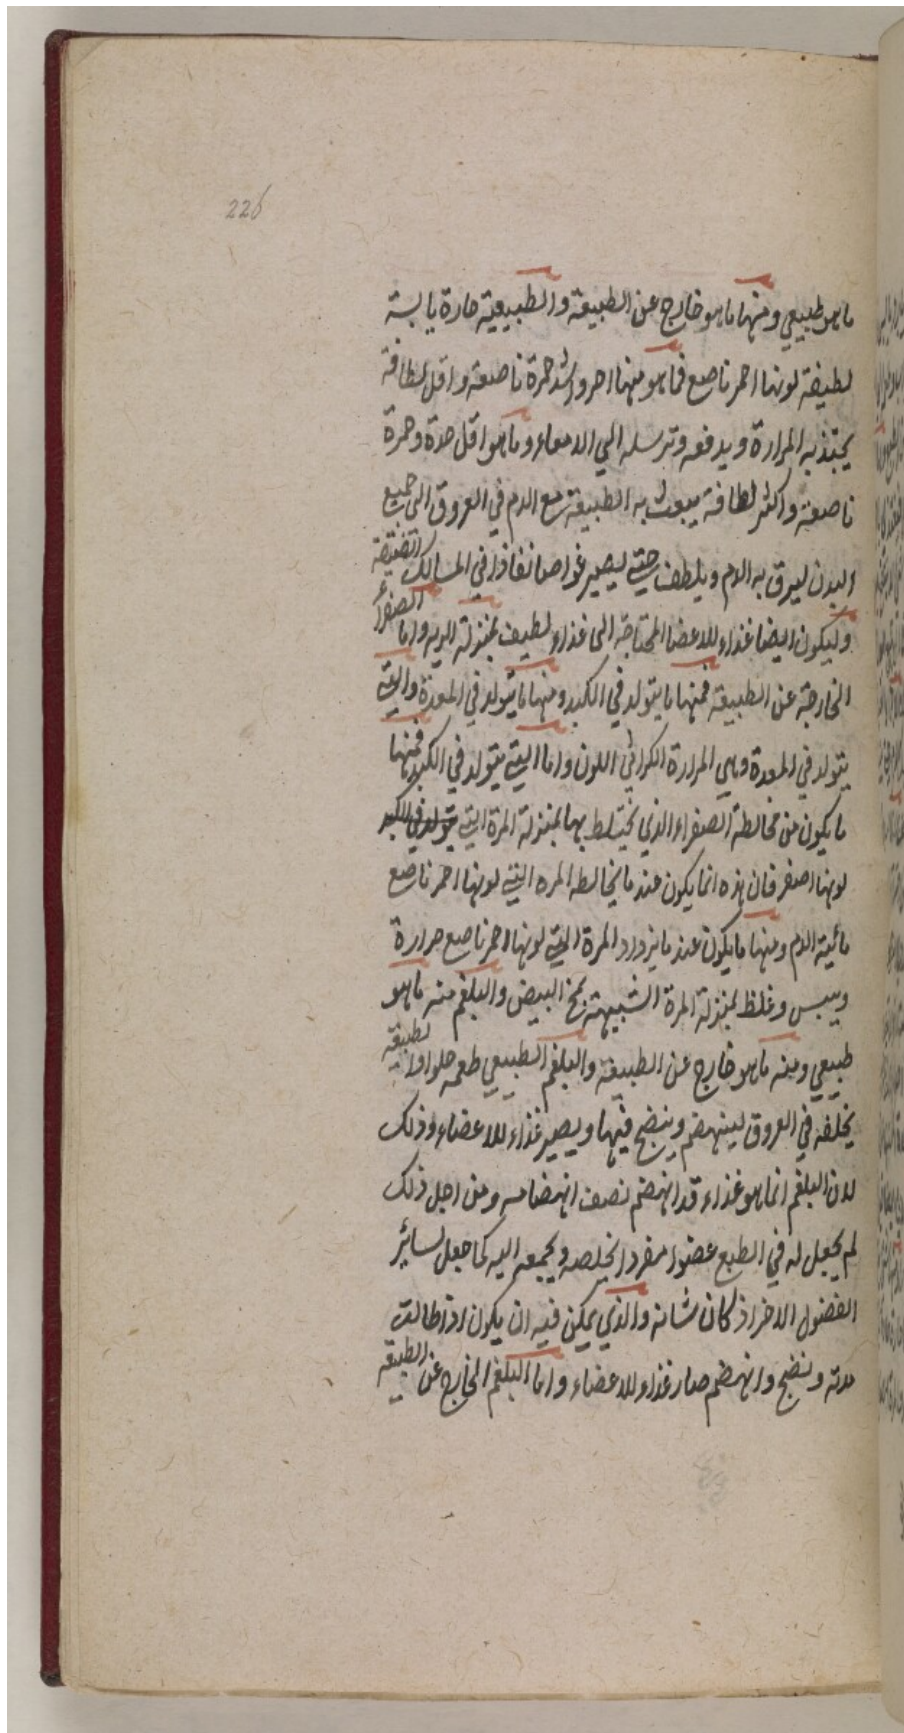 226
ما هو طبيعي ومنها ما هو خارج عن الطبيعة والطبيعية حارة يابسة
لطيفة لونها احمر ناصع فما هو منها احر واشد حمرة ناصعة واقل لطافة
يجتذبه المرارة ويدفعه وترسله الي الامعاء وما هو اقل حدة وحمرة
ناصعة واكثر لطافة يبعث به الطبيعة مع الدم في العروق الى جميع
البدن ليرق به الدم ويلطف حتى ليصير غواصا نفاذا في المسالك الضيقة
وليكون ايضا غذاء للاعضا المحتاجة الى غذاء لطيف بمنزلة الريه واما الصفرا
الخارجة عن الطبيعة فمنها ما يتولد في الكبد ومنها ما يتولد في المعدة والتي
يتولد في المعدة وهي المرارة الكراثي اللون واما التي يتولد في الكبد فمنها
ما يكون من مخالطة الصفراء الذي يختلط بها بمنزلة المرة التي يتولد في الكبد
لونها اصفر فان هذه انما يكون عند ما يخالطه المره التي لونها احمر ناصع
مائية الدم ومنها ما يكون عند ما يزداد المرة التي لونها احمر ناصع حرارة
ويبس وغلظ بمنزلة المرة الشبيهة بمخ البيض والبلغم منه ما هو
طبيعي ومنه ما هو خارج عن الطبيعة والبلغم الطبيعي طعمه حلو او لطبيقه
يخلفه في العروق لينهضم وينضج فيها ويصير غذاء للاعضاء وذلك
لان البلغم انما هو غذاء قد انهضم نصف انهضامه ومن اجل ذلك
لم يجعل له في الطبع عضوا مفردا يخلصه ويجمعه اليه كما جعل لسائر
الفضول الاخر اذ كان شانه والذي يمكن فيه ان يكون اذا طالت
مدته ونضج وانهضم صار غذاء للاعضاء واما البلغم الخارج عن الطبيعة